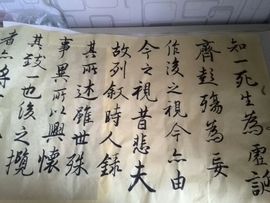 知一死生為虛誕
齊彭殤為妄
作後之視今亦由
今之視昔悲夫
故列叙時人錄
其所述雖世殊
事異所以興懷
其致一也後之攬
者亦將